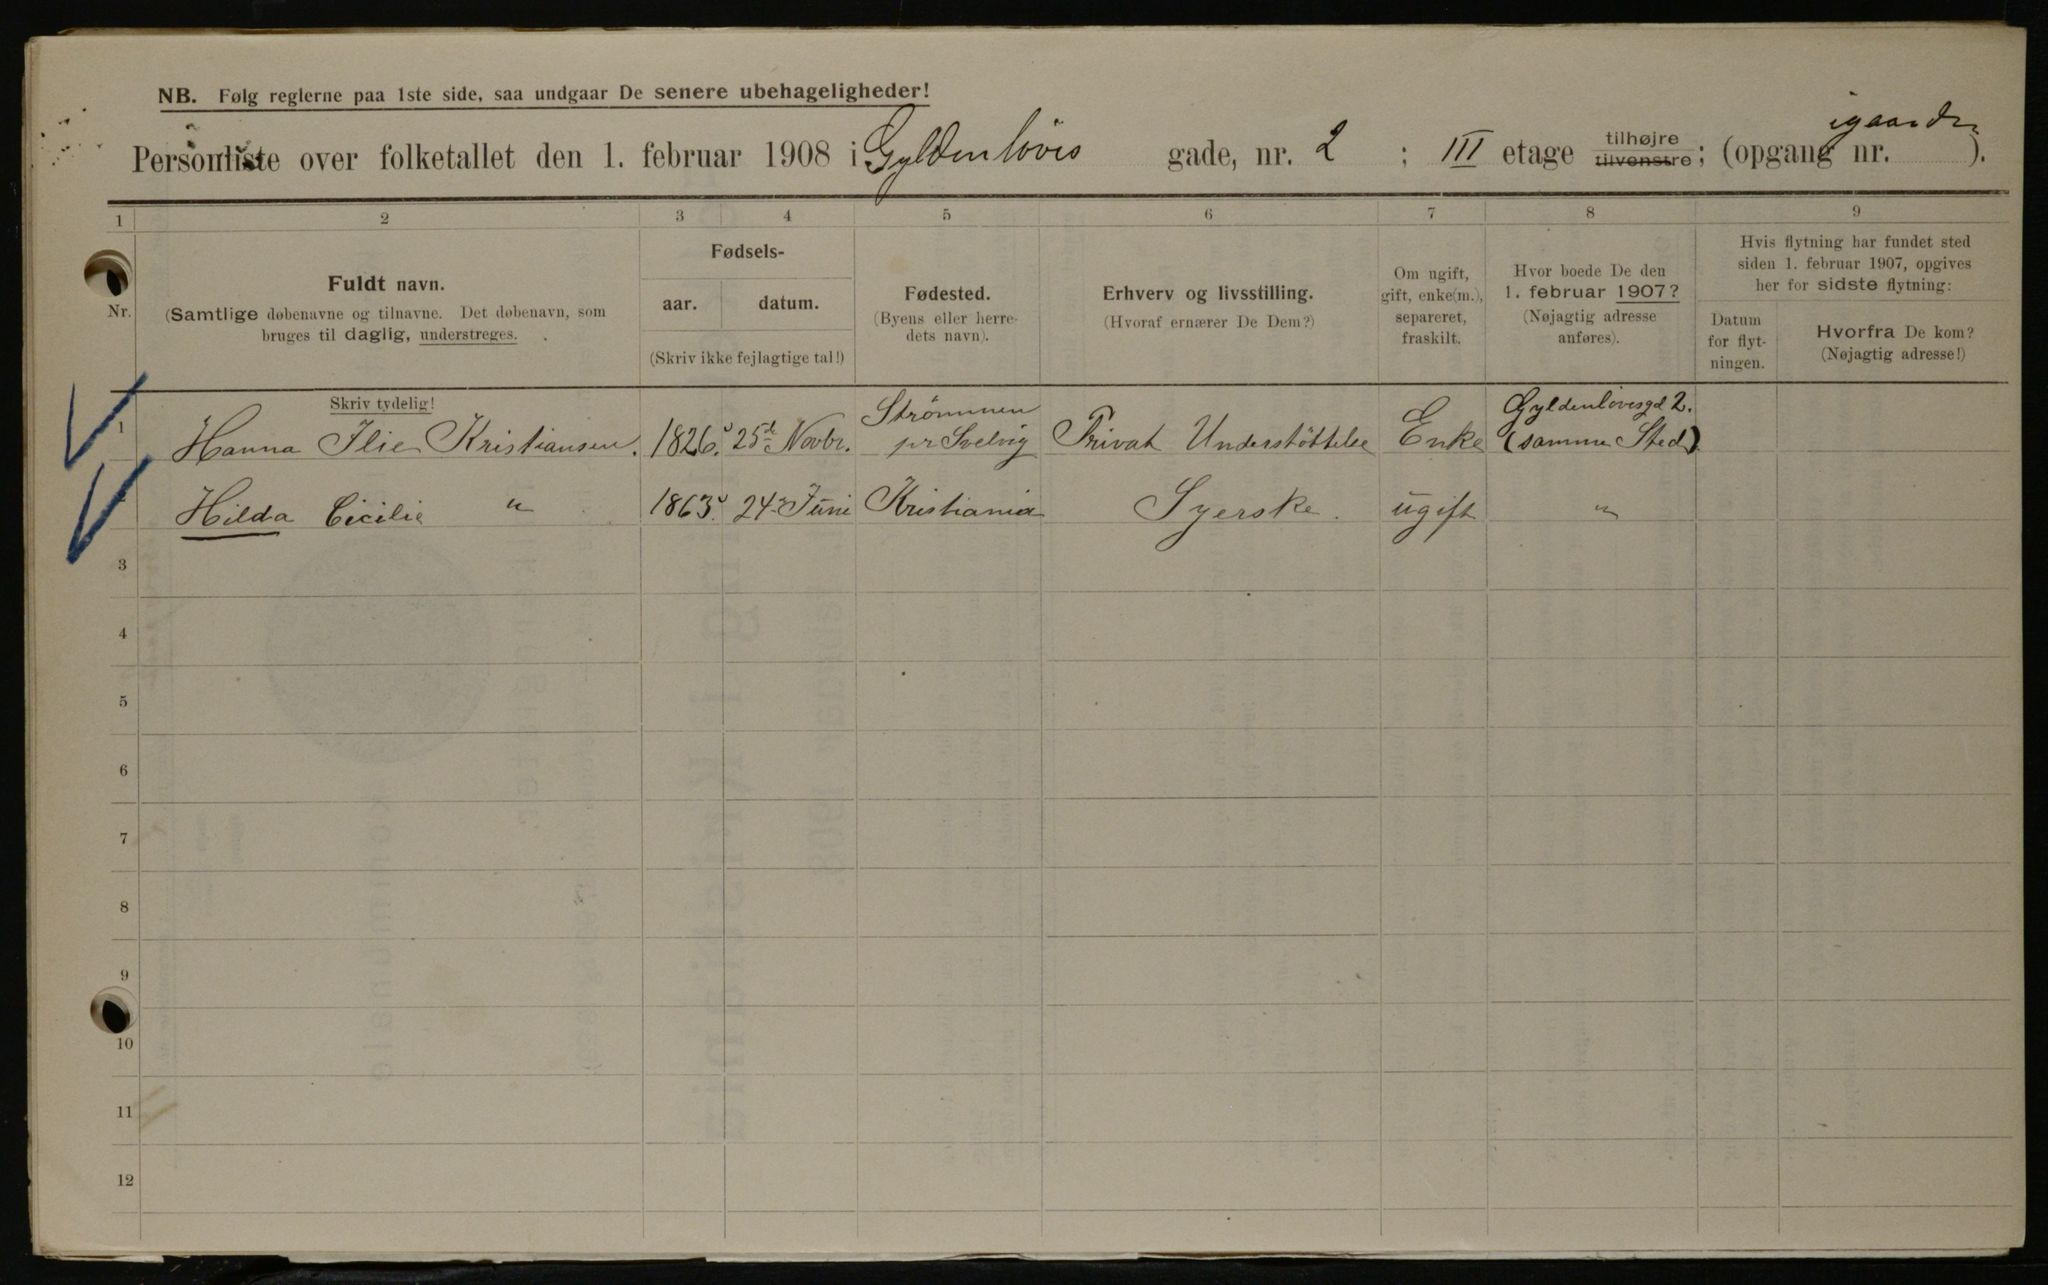 NB. Følg reglerne paa 1ste side, saa undgaar De senere ubehageligheder!
Personliste over folketallet den 1. februar 1908 i Gyldenløves gade, nr. 2 ; III etage tilhøjre tilvenstre; (opgang nr. igaarden ).
1 2 3 4 5 6 7 8 9
Nr.
Fuldt navn.
(Samtlige døbenavne og tilnavne. Det døbenavn, som
bruges til daglig, understreges.
Fødsels-
aar. datum.
(Skriv ikke fejlagtige tal!)
Fødested.
(Byens eller herre-
dets navn).
Erhverv og livsstilling.
(Hvoraf ernærer De Dem?)
Om ugift,
gift, enke(m.),
separeret,
fraskilt.
Hvor boede De den
1. februar 1907?
(Nøjagtig adresse
anføres).
Hvis flytning har fundet sted
siden 1. februar 1907, opgives
her for sidste flytning:
Datum
for flyt-
ningen.
Hvorfra De kom?
(Nøjagtig adresse!)
Skriv tydelig!
1 Hanna Ilie Kristiansen. 1826. 25d Novbr. Strömmen pr Svelvig Privat Understöttelse Enke Gyldenlövesgd 2. (samme Sted)
2 Hilda Cicilie " 1863. 24 Juni Kristiania Syerske. ugift "
3
4
5
6
7
8
9
10
11
12